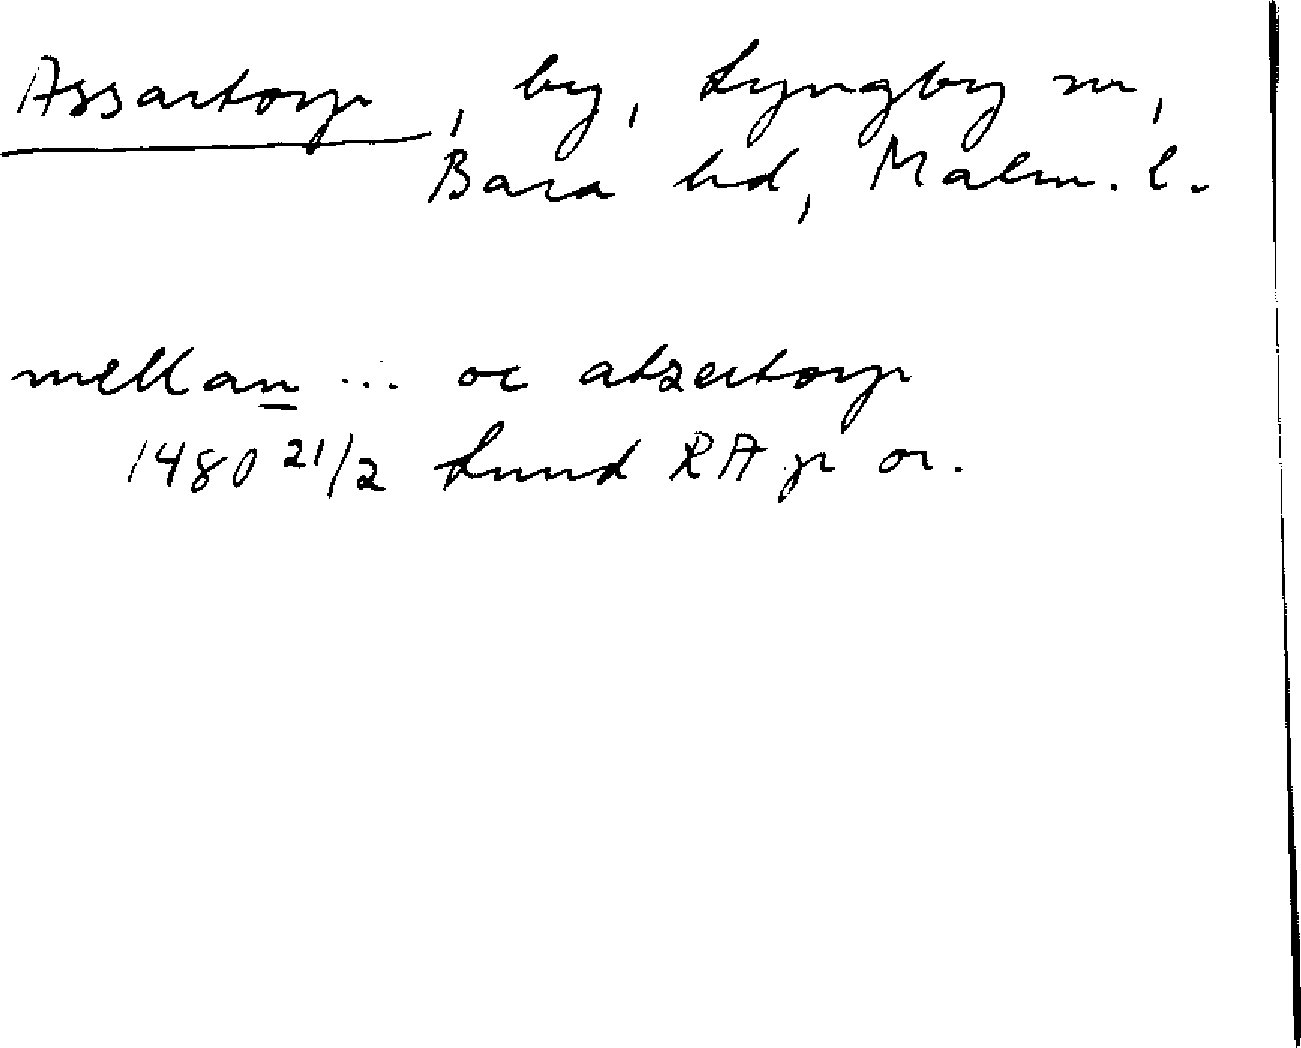 Assartorp, by, Lyngby sn,
Bara hd, Malm. l.
mellan ... oc atzertorp
1480 21/2 Lund RA p or.